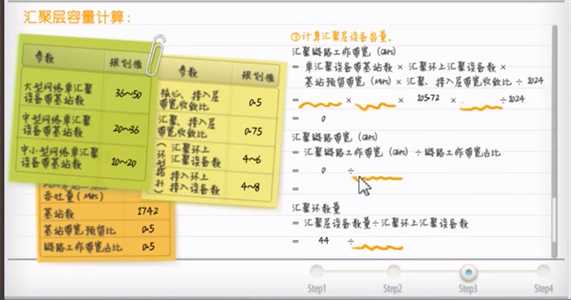 汇聚层容量计算：
参数 规划值
大型网络单汇聚设备带基站数 36~50
中型网络单汇聚设备带基站数 20~36
中小型网络单汇聚设备带基站数 10~20
参数 规划值
核心、接入层带宽收敛比 0.5
汇聚、接入层带宽收敛比 0.75
汇聚环上汇聚设备数 4~6
接入环上接入设备数 4~8
吞吐量（Mbps）
基站数 1742
基站带宽预留比 0.5
链路工作带宽占比 0.5
①计算汇聚层设备容量。
汇聚链路工作带宽（Gbps）
= 单汇聚设备带基站数 × 汇聚环上汇聚设备数 ×
基站预留带宽（Mbps）× 汇聚、接入层带宽收敛比 ÷ 1024
= × × 105.72 × ÷1024
= 0
汇聚链路带宽（Gbps）
= 汇聚链路工作带宽（Gbps）÷ 链路工作带宽占比
= 0 ÷
=
汇聚环数量
= 汇聚层设备数量÷汇聚环上汇聚设备数
= 44 ÷
Step1 Step2 Step3 Step4